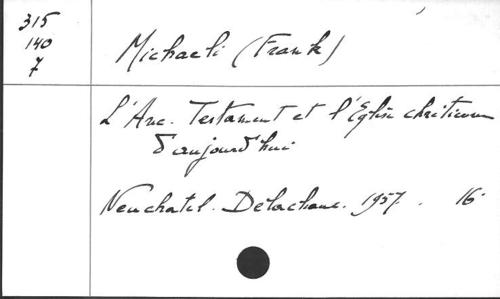 315
140
7
Michaeli (Frank)
L'Anc. Testament et l'Eglise chrétienne
d'aujourd'hui
Neuchatel. Delachaux. 1957. 16°